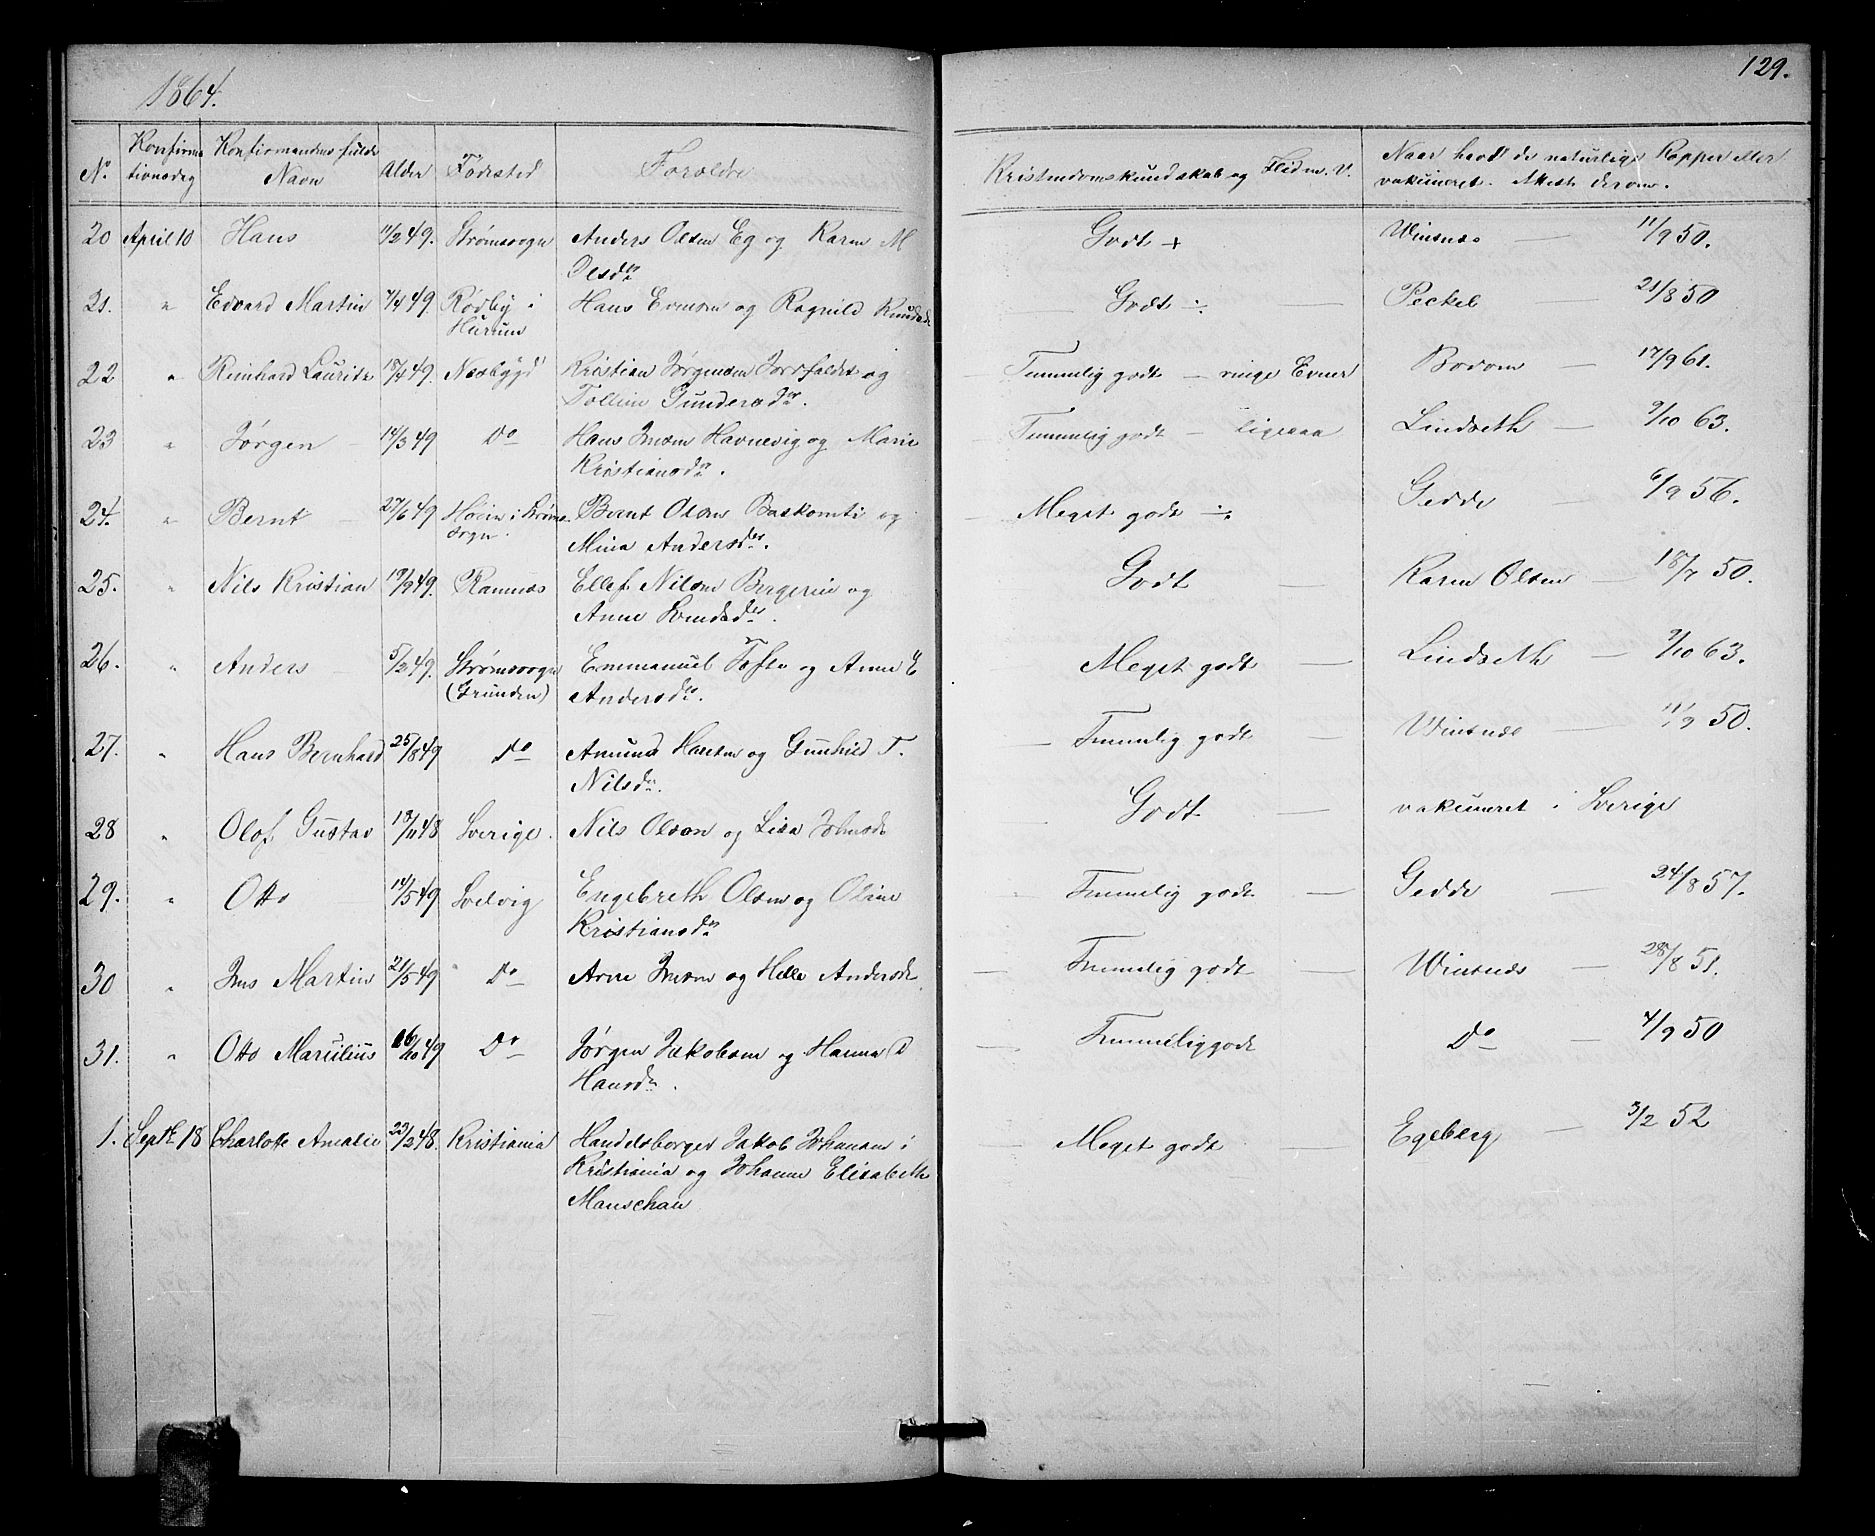 1864.
129.
No Konfirmationsdag Konfirmandens fulde Navn Alder Fødested Forældre Kristendomskundskab og Flid m. V. Naar havdt de naturlige Kopper eller vakcineret. Attest derom.
20 April 10 Hans 11/2 49. Strømsogn Anders Olsen Eg og Karen M Olsdr Godt + Winsnes — 11/9 50.
21. " Edvard Martin 7/4 49 Rødby i Hurum Hans Evensen og Ragnild Knudsdr Godt ÷ — Peckel 21/8 50
22 " Reinhard Lauritz 18/4 49. Nesbygd Kristian Jørgensen og Tolline Gundersdr. Temmelig godt — ringe Evner Bodom — 17/9 61.
23 " Jørgen 14/3 49 Do Hans Jensen Havnevig og Marie Kristiansdr. Temmelig godt — ligesaa Lindseth — 9/10 63.
24. " Bernt 27/6 49 i Strømsogn. Bernt Olsen og Mina Andersdr. Meget godt ÷ Gedde — 6/9 56.
25. " Nils Kristian 19/9 49. Ramnes Ellef Nilsen Bergerin og Anne Knudsdr. Godt — Karen Olsen — 18/7 50.
26. " Anders 5/2 49. Strømsogn (Grunden) Emmanuel Tofte og Anne E Andersdr. Meget godt — Lindseth — 9/10 63.
27. " Hans Bernhard 25/8 49 Do Amund Hansen og Gunhild T. Nilsdr. Temmelig godt — Winsnes — 11/9 50.
28 " Olof Gustav 18/11 48 Sverige. Nils Olson og Lisa Johnsdr Godt — vakcineret i Sverige
29. " Otto 14/5 49 Svelvig Engebreth Olsen og Oline Kristiansdr Temmelig godt — Gedde — 24/8 57.
30 " Jens Martin 21/5 49 Do Arne Jensen og Helle Andersdr. Temmelig godt — Winsnes — 28/8 51.
31. " Otto Marcilius 26/10 49 Do Jørgen Jakobsen og Hanna D Hansdr. Temmelig godt Do — 4/9 50
1. Septbr 18 Charlotte Amalie 22/2 48. Kristiania Handelsborger Jakob Johansen i Kristiania og Johanne Elisabeth Manschau Meget godt — Egeberg — 3/2 52